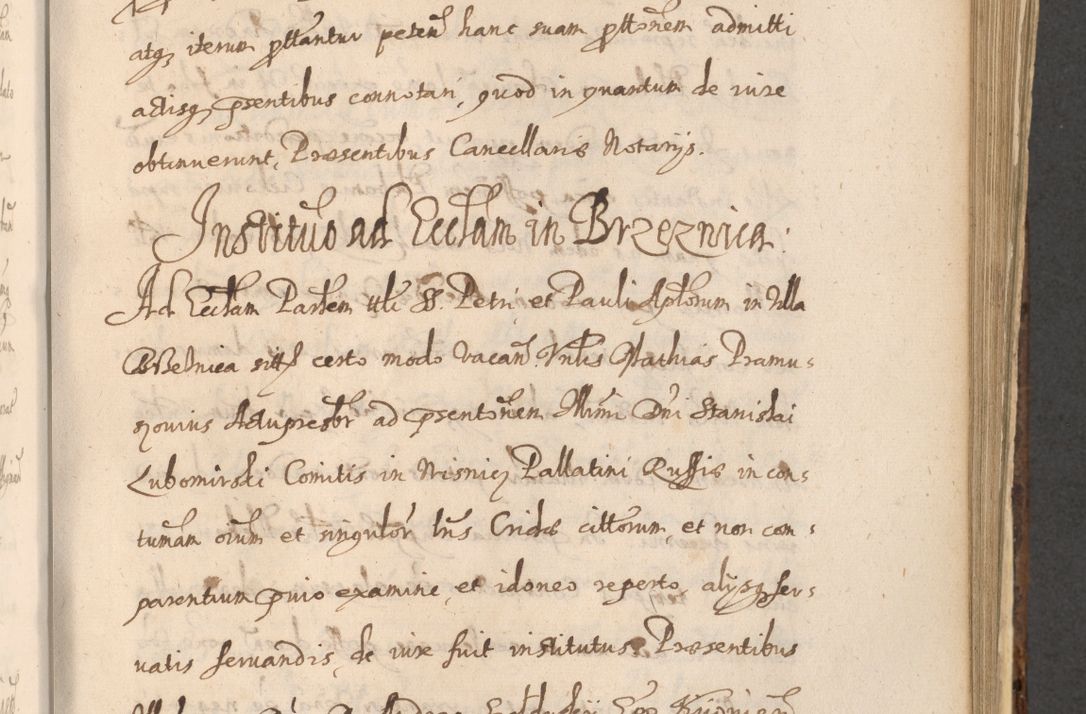 atq₃ iterum ꝓttantur peten̄ hanc suam ꝓttōnem admitti
actisq₃ p̄sentibus connotari, quod in quantum de iure
obtinuerunt, Præsentibus Cancellariæ Notarijs.
Institūo ad Eccl̄am in Brzeznica.
Ad Eccl̄am Parlēm ttli SS. Petri et Pauli Apl̄orum in Villa
certo modo vacan̄. Vnl̄is Mathias Pramu-
ad p̄sentōnem Illm̄i Dn̄i Stanislai
Lubomirski Comitis in Wisnicz Pallatini Russiæ in con-
tum̄am oīum et singulōr In̄s Cridæ cittōrum, et non com-
parentium p̄uio examine, et idoneo reperto, alijsq₃ ser-
vatis servandis, de iure fuit institutus. Præsentibus